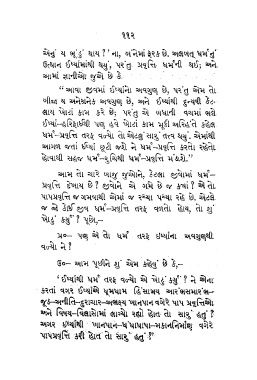 ૧૧૨
એનું ય ભૂંડું થાય ? ' ના, બંનેમાં ફરક છે. અલબત્ત ધર્મનું
ઉત્થાન ઈર્ષ્યામાંથી થયું, પરંતુ પ્રવૃત્તિ ધર્મની થઈ; અને
આમાં જ્ઞાનીએ જુએ છે કે
" આવા જીવમાં ઈર્ષ્યાનો અવગુણ છે, પરંતુ એમ તો
બીજા ય અનેકાનેક અવગુણ છે, અને ઈર્ષ્યાથી દુન્યવી કેટ-
લાય ખોટાં કામ કરે છે; પરંતુ એ બધાની વચમાં ભલે
ઈર્ષ્યા-હરિફાઈથી પણ હવે ખોટાં કામ મૂકી અરિહંતે કહેલ
ધર્મ-પ્રવૃત્તિ તરફ વળ્યો તો એટલું સારું તત્ત્વ થયું. એમાંથી
આગળ જતાં ઈર્ષ્યા છૂટી જશે ને ધર્મ-પ્રવૃત્તિ કરતો રહેતો
હોવાથી સહજ ધર્મ-રુચિથી ધર્મ-પ્રવૃત્તિ મંડશે."
આમ તો ચારે બાજુ જુઓને, કેટલા જીવોમાં ધર્મ-
પ્રવૃત્તિ દેખાય છે ? જીવોને એ ગમે છે જ ક્યાં ? એ તો
પાપપ્રવૃત્તિ જગમવાથી એમાં જ રચ્યા પચ્યા રહે છે. એટલે
જ એ કોઈ જીવ ધર્મ-પ્રવૃત્તિ તરફ વળતો હોય, તો શું
' ખોટું કર્યું' ? પૂછો,-
પ્ર૦- પણ એ તો ધર્મ તરફ ઈર્ષ્યાના અવગુણથી
વળ્યો ને ?
ઉ૦- આમ પૂછીને શું એમ કહેવું છે કે,-
' ઈર્ષ્યાથી ધર્મ તરફ વળ્યો એ ખોટું કર્યું' ? ને એના
કરતાં વગર ઈર્ષ્યાએ ધૂમધામ હિંસામય આરંભસમારંભ-
જૂઠ-અનીતિ-દુરાચાર-અભક્ષ્ય ખાનપાન વગેરે પાપ પ્રવૃત્તિઓ
અને વિષય-વિલાસોમાં લાગ્યો રહ્યો હોત તો સારું હતું ?
અગર ઈર્ષ્યાથી ખાનપાન-ધંધાધાપા-મકાનનિર્માણ વગેરે
પાપપ્રવૃત્તિ કરી હોત તો સારું હતું ?'